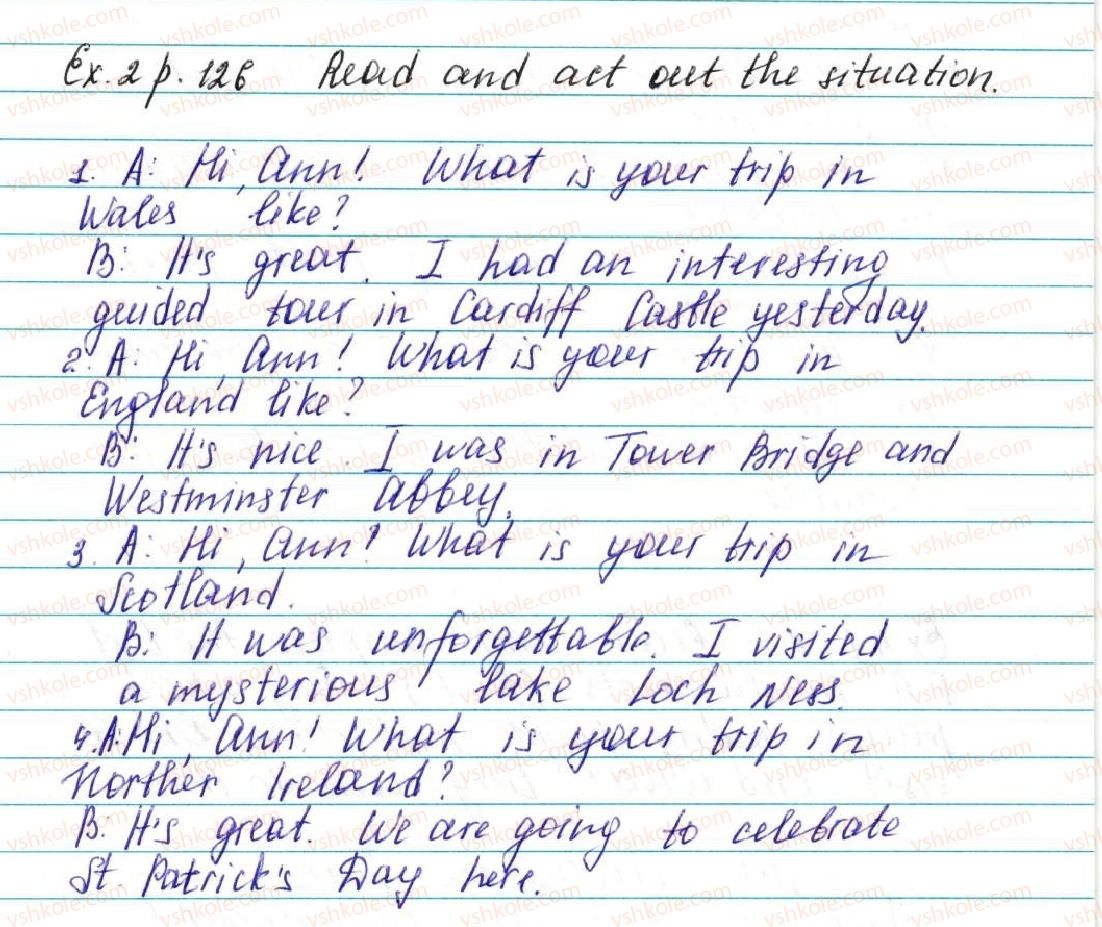 Ex. 2 p. 126 Read and act out the situation.
1. A: Hi, Ann! What is your trip in
Wales like?
B: It's great. I had an interesting
guided tour in Cardiff Castle yesterday.
2. A: Hi, Ann! What is your trip in
England like?
B: It's nice. I was in Tower Bridge and
Westminster Abbey.
3. A: Hi, Ann! What is your trip in
Scotland.
B: It was unforgettable. I visited
a mysterious lake Loch Ness.
4. A: Hi, Ann! What is your trip in
Norther Ireland?
B: It's great. We are going to celebrate
St. Patrick's Day here.